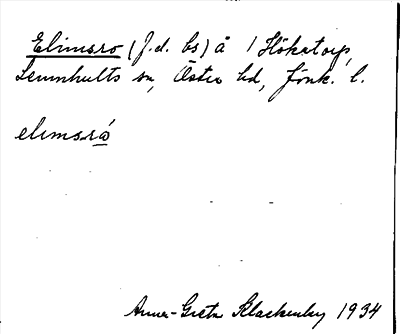 Elimsro (J.d. bs) å / Hökatorp,
Lemnhults sn, Östra hd, Jönk. l.
elimsrò
Anna-Greta Klackenberg 1934